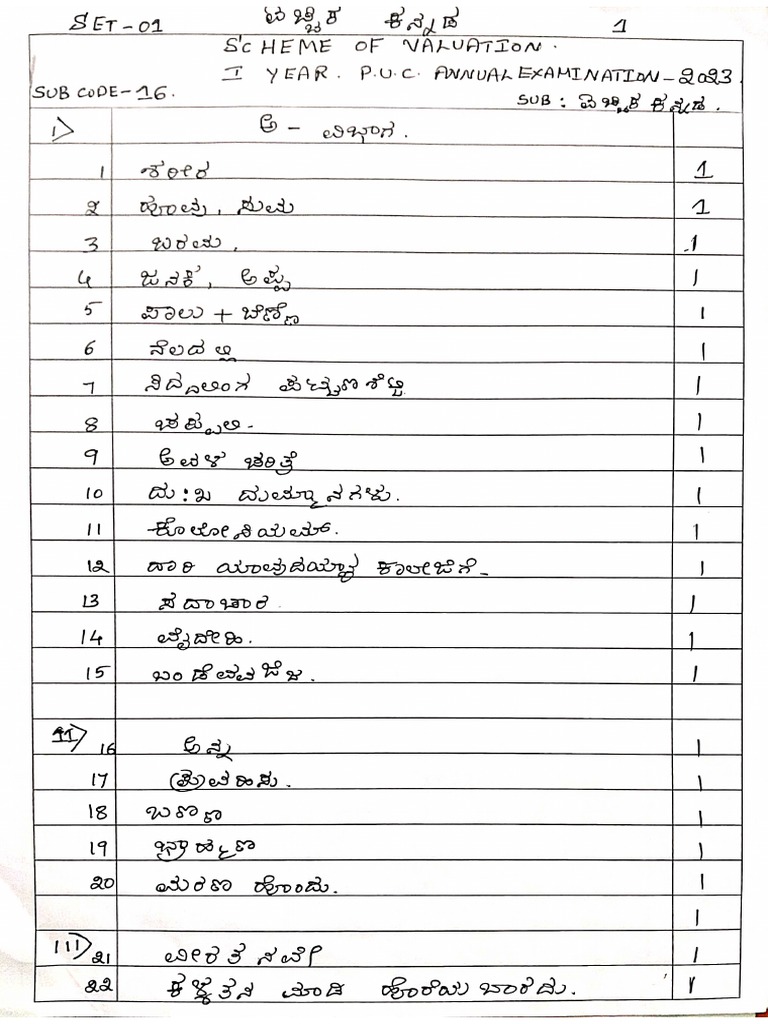 SET-01 ಐಚ್ಛಿಕ ಕನ್ನಡ 1
SCHEME OF VALUATION.
I YEAR. P.U.C. ANNUAL EXAMINATION-2023
SUB CODE-16. SUB: ಐಚ್ಛಿಕ ಕನ್ನಡ.
I> ಅ - ವಿಭಾಗ.
1 ಶರೀರ 1
2 ಹೂವು, ಸುಮ 1
3 ಬರಮ. 1
4 ಜನಕ, ಅಪ್ಪ 1
5 ಪಾಲು + ಬೆಣ್ಣೆ 1
6 ನೆಲದಲ್ಲಿ 1
7 ಸಿದ್ದಲಿಂಗ ಪಟ್ಟಣಶೆಟ್ಟಿ 1
8 1
9 ಅವಳ ಚರಿತ್ರೆ 1
10 ದು:ಖ ದುಮ್ಮಾನಗಳು. 1
11 ಕೊಲೋನಿಯಮ್. 1
12 ದಾರಿ ಯಾವುದಯ್ಯಾ ಕಾಲೇಜಿಗೆ- 1
13 ಸದಾಚಾರ. 1
14 ವೈದೇಹಿ. 1
15 1
II> 16 ಅನ್ನ 1
17 1
18 ಬಣಣ 1
19 ಬ್ರಾಹ್ಮಣ 1
20 ಮರಣ ಹೊಂದು. 1
1
III> 21 ವೀರತನವೇ 1
22 ಕಳ್ಳತನ ಮಾಡಿ ಹೊರೆಯಬಾರದು. 1